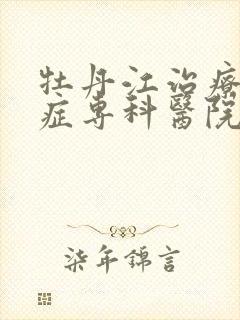 牡丹江治療
症專科醫院
柒年錦言